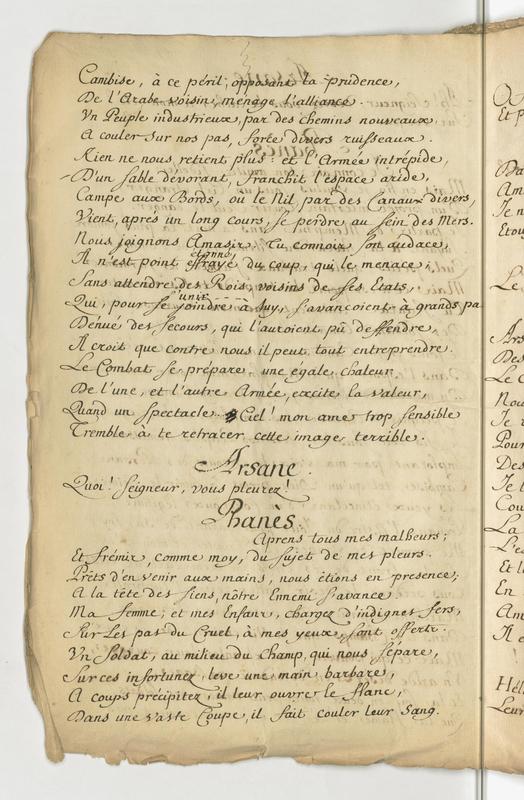 Cambise, à ce péril, opposant la prudence,
De l'Arabe voisin, ménage l'alliance.
Un Peuple industrieux, par des chemins nouveaux,
A couler sur nos pas, force divers ruisseaux.
Rien ne nous retient plus: et l'Armée intrépide,
D'un sable dévorant, franchit l'espace aride,
Campe aux Bords, où le Nil, par des Canaux divers,
Vient, aprés un long cours, se perdre au sein des Mers.
Nous joignons Amasis. Tu connois son audace,
étonné
Il n'est point effrayé du coup, qui le menace;
Sans attendre des Rois, voisins de ses Etats,
unir
Qui, pour se joindre à luy, s'avancoient à grands pa
Dénué des secours, qui l'auroient pû deffendre,
Il croit que contre nous il peut tout entreprendre.
Le Combat se prépare, une égale chaleur,
De l'une, et l'autre Armée, excite la valeur,
Quand un spectacle.. Ciel! mon ame trop sensible
Tremble à te retracer cette image terrible.
Arsane.
Quoi! seigneur, vous pleurez!
Phanès.
Aprens tous mes malheurs;
Et frémis, comme moy, du sujet de mes pleurs.
Prêts d'en venir aux mains, nous étions en presence;
A la tête des siens, nôtre Ennemi s'avance.
Ma femme, et mes Enfans, chargez d'indignes fers,
Sur Les pas du Cruel, à mes yeux, sont offerts.
Un Soldat, au milieu du Champ, qui nous sépare,
Sur ces infortunez, leve une main barbare,
A coups précipitez, il leur ouvre le flanc,
Dans une vaste Coupe, il fait couler leur sang.